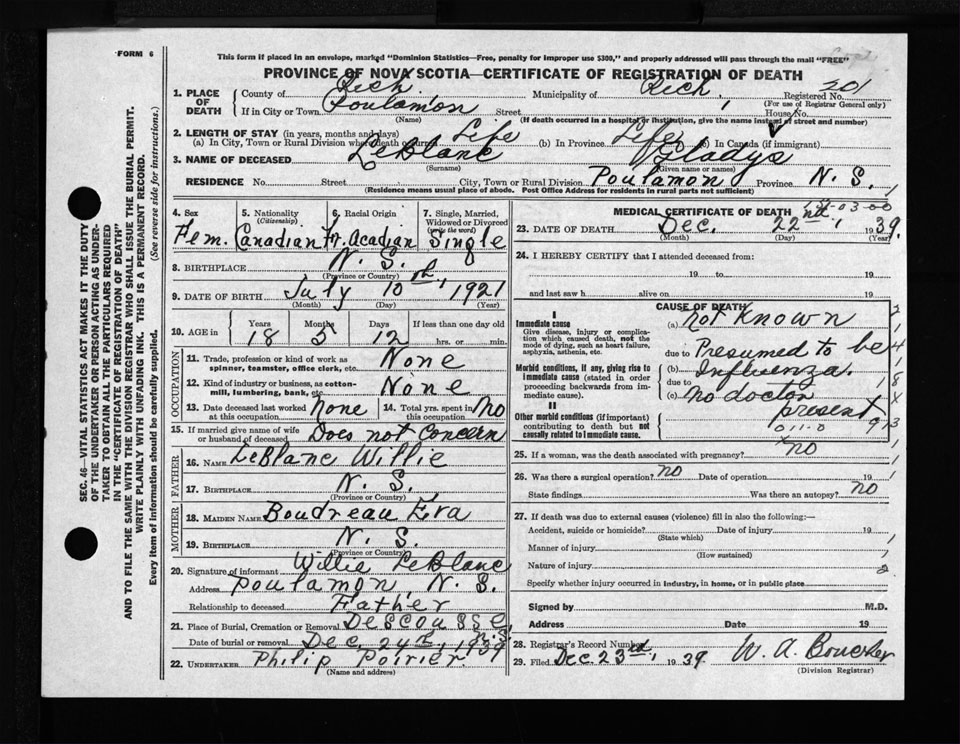 FORM 6
This form if placed in an envelope, marked "Dominion Statistics—Free, penalty for improper use $300," and properly addressed will pass through the mail "FREE"
PROVINCE OF NOVA SCOTIA—CERTIFICATE OF REGISTRATION OF DEATH
1. PLACE OF DEATH
County of Rich Municipality of Rich, Registered No. 201
(For use of Registrar General only)
If in City or Town Poulamon Street House No.
(Name) (If death occurred in a hospital or institution, give the name instead of street and number)
2. LENGTH OF STAY (in years, months and days)
(a) In City, Town or Rural Division where death occurred Life (b) In Province Life (c) In Canada (if immigrant)
3. NAME OF DECEASED LeBlanc Gladys
(Surname) (Given name or names)
RESIDENCE No. Street City, Town or Rural Division Poulamon Province N. S.
(Residence means usual place of abode. Post Office Address for residents in rural parts not sufficient)
4. Sex
Fem.
5. Nationality (Citizenship)
Canadian
6. Racial Origin
Fr Acadian
7. Single, Married, Widowed or Divorced (write the word)
Single
8. BIRTHPLACE N. S.
(Province or Country)
9. DATE OF BIRTH July 10th, 1921
(Month) (Day) (Year)
10. AGE in Years Months Days If less than one day old
18 5 12 hrs. or min.
OCCUPATION
11. Trade, profession or kind of work as spinner, teamster, office clerk, etc. None
12. Kind of industry or business, as cotton-mill, lumbering, bank, etc. None
13. Date deceased last worked at this occupation None
14. Total yrs. spent in this occupation. No
15. If married give name of wife or husband of deceased Does not Concern
FATHER
16. NAME LeBlanc Willie
17. BIRTHPLACE N. S.
(Province or Country)
MOTHER
18. MAIDEN NAME Boudreau Eva
19. BIRTHPLACE N. S.
(Province or Country)
20. Signature of informant Willie LeBlanc
Address Poulamon, N. S.
Relationship to deceased Father
21. Place of Burial, Cremation or Removal Descousse, N.S.
Date of burial or removal Dec. 24th, 1939
22. UNDERTAKER Philip Poirier
(Name and address)
MEDICAL CERTIFICATE OF DEATH
23. DATE OF DEATH Dec. 22nd, 1939.
(Month) (Day) (Year)
24. I HEREBY CERTIFY that I attended deceased from
19 to 19
and last saw h alive on 19
CAUSE OF DEATH
I
Immediate cause
Give disease, injury or complication which caused death, not the mode of dying, such as heart failure, asphyxia, asthenia, etc.
(a) Not Known
due to Presumed to be
Morbid conditions, if any, giving rise to immediate cause (stated in order proceeding backwards from immediate cause).
(b) Influenza.
due to
(c) No doctor
present
II
Other morbid conditions (if important) contributing to death but not causally related to immediate cause.
011-0
25. If a woman, was the death associated with pregnancy? no
26. Was there a surgical operation? no Date of operation 19
State findings Was there an autopsy? no
27. If death was due to external causes (violence) fill in also the following:—
Accident, suicide or homicide? Date of injury 19
(State which)
Manner of injury
(How sustained)
Nature of injury
Specify whether injury occurred in industry, in home, or in public place
Signed by M.D.
Address Date 19
28. Registrar's Record Number
29. Filed Dec. 23rd, 1939. W. A. Boucher
(Division Registrar)
SEC. 46—VITAL STATISTICS ACT MAKES IT THE DUTY
OF THE UNDERTAKER OR PERSON ACTING AS UNDER-
TAKER TO OBTAIN ALL THE PARTICULARS REQUIRED
IN THE "CERTIFICATE OF REGISTRATION OF DEATH"
AND TO FILE THE SAME WITH THE DIVISION REGISTRAR WHO SHALL ISSUE THE BURIAL PERMIT.
WRITE PLAINLY WITH UNFADING INK. THIS IS A PERMANENT RECORD.
Every item of information should be carefully supplied. (See reverse side for instructions.)